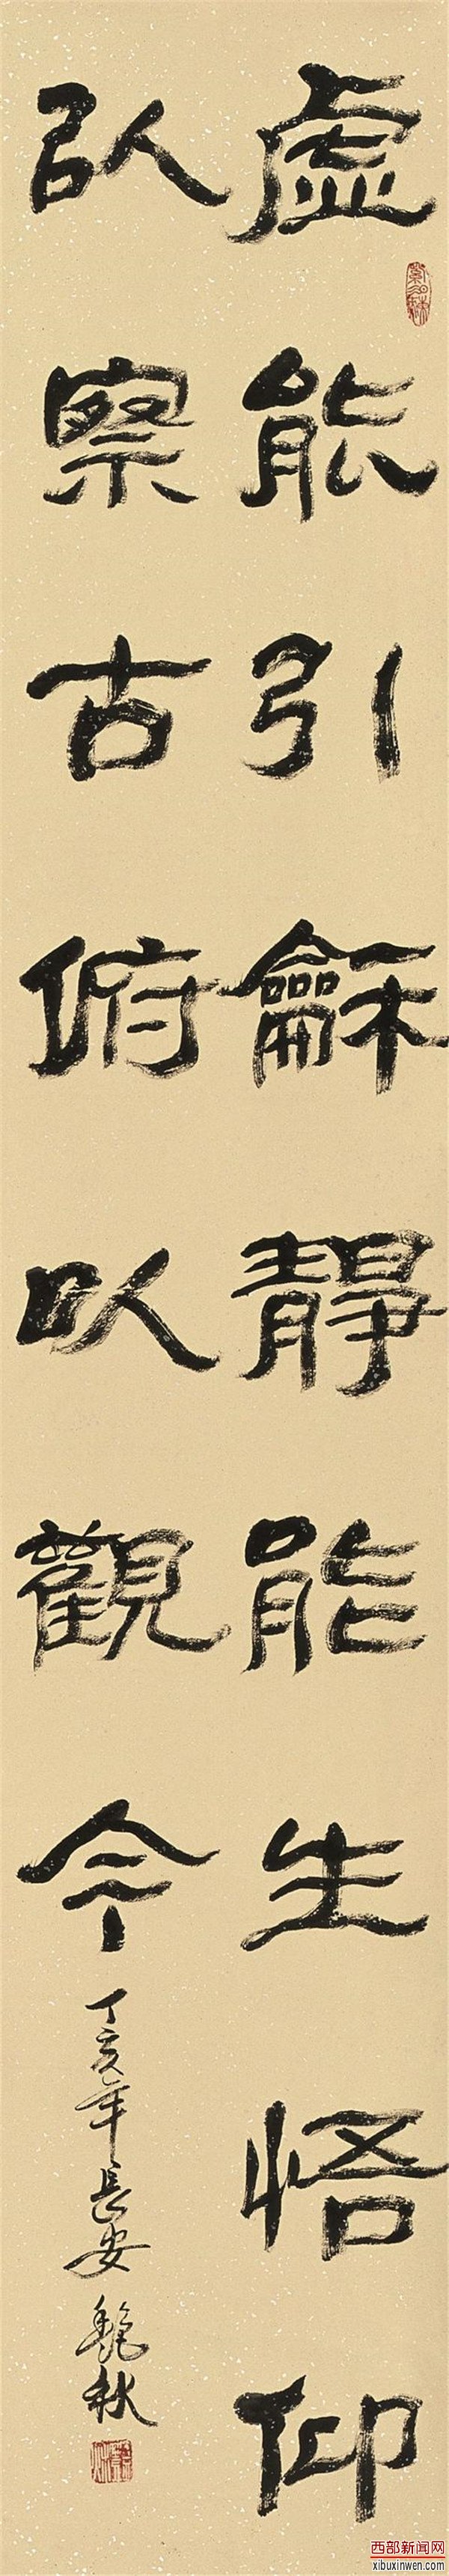 虚能引龢静能生悟仰
以察古俯以观今
丁亥年长安艳秋
西部新闻网
xibuxinwen.com